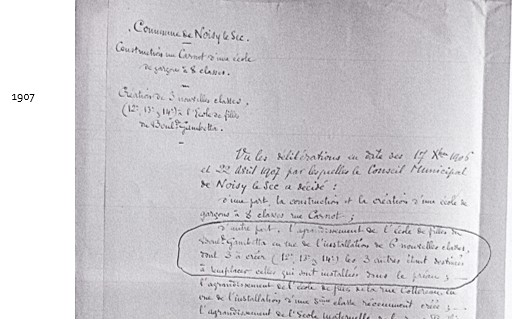 1907
Commune de Noisy le Sec.
Construction rue Carnot d'une école
de garçons à 8 classes.
Création de 3 nouvelles classes,
(12e, 13e & 14e) à l'école de filles
du Boul.d Gambetta.
Vu les délibérations en date des 17 Xbre 1906
et 22 avril 1907 par lesquelles le Conseil Municipal
de Noisy le Sec a décidé :
d'une part, la construction et la création d'une école de
garçons à 8 classes rue Carnot ;
d'autre part, l'agrandissement de l'école de filles du
Boul.d Gambetta en vue de l'installation de 6 nouvelles classes,
dont 3 à créer (12e, 13e & 14e) les 3 autres étant destinées
à remplacer celles qui sont installées dans le préau ;
l'agrandissement de l'école de filles de la rue
vue de l'installation d'une classe récemment créée ;
l'agrandissement de l'école maternelle